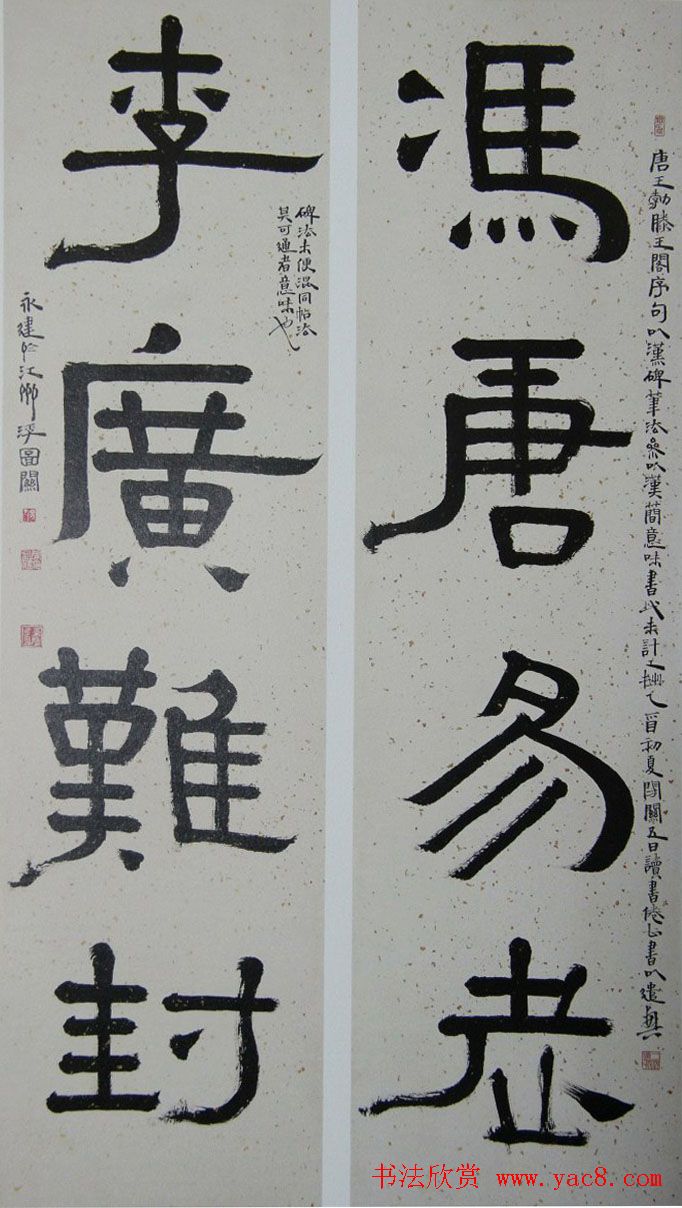 馮唐易老
唐王勃滕王閣序句以漢碑筆法參以漢簡意味書此未計工拙乙酉初夏閉關五日讀書倦書以遣興
李廣難封
碑法未便混同帖法
其可通者意味也
永建於江浮圖關
书法欣赏 www.yac8.com